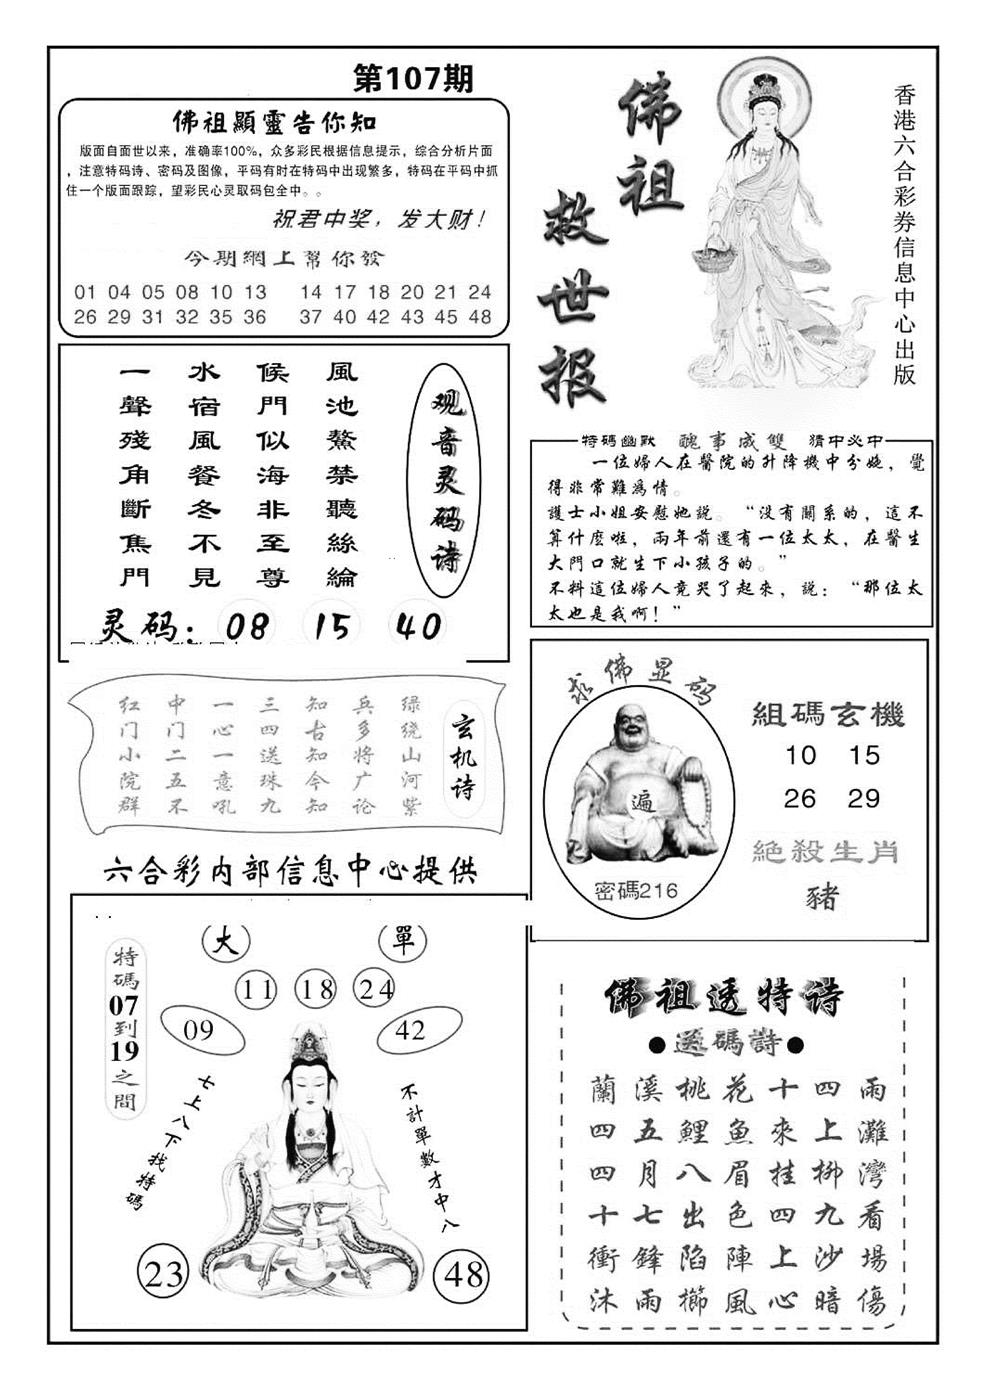 第107期
佛祖顯靈告你知
版面自面世以来，准确率100%，众多彩民根据信息提示，综合分析片面
，注意特码诗、密码及图像，平码有时在特码中出现繁多，特码在平码中抓
住一个版面跟踪，望彩民心灵取码包全中。。
祝君中奖，发大财！
今期網上幫你發
01 04 05 08 10 13 14 17 18 20 21 24
26 29 31 32 35 36 37 40 42 43 45 48
佛祖救世报
香港六合彩券信息中心出版
观音灵码诗
風池鰲禁聽絲綸
候門似海非至尊
水宿風餐冬不見
一聲殘角斷焦門
灵码：08 15 40
特碼幽默 醜事成雙 猜中必中
一位婦人在醫院的升降機中分娩，覺
得非常難為情。
護士小姐安慰她説。“沒有關系的，這不
算什麼啦，兩年前還有一位太太，在醫生
大門口就生下小孩子的。”
不料這位婦人竟哭了起來，説：“那位太
太也是我啊！”
玄机诗
绿绕山河紫
兵多将广论
知古知今知
三四送珠九
一心一意吼
中门二五不
红门小院群
六合彩内部信息中心提供
求佛显码
遍
密碼216
組碼玄機
10 15
26 29
絕殺生肖
豬
特碼07到19之間
大 單
11 18 24
09 42
七上八下找特碼
不計單數才中八
23 48
佛祖透特诗
●送碼詩●
蘭溪桃花十四雨
四五鯉魚來上灘
四月八眉挂柳灣
十七出色四九看
衝鋒陷陣上沙場
沐雨櫛風心暗傷